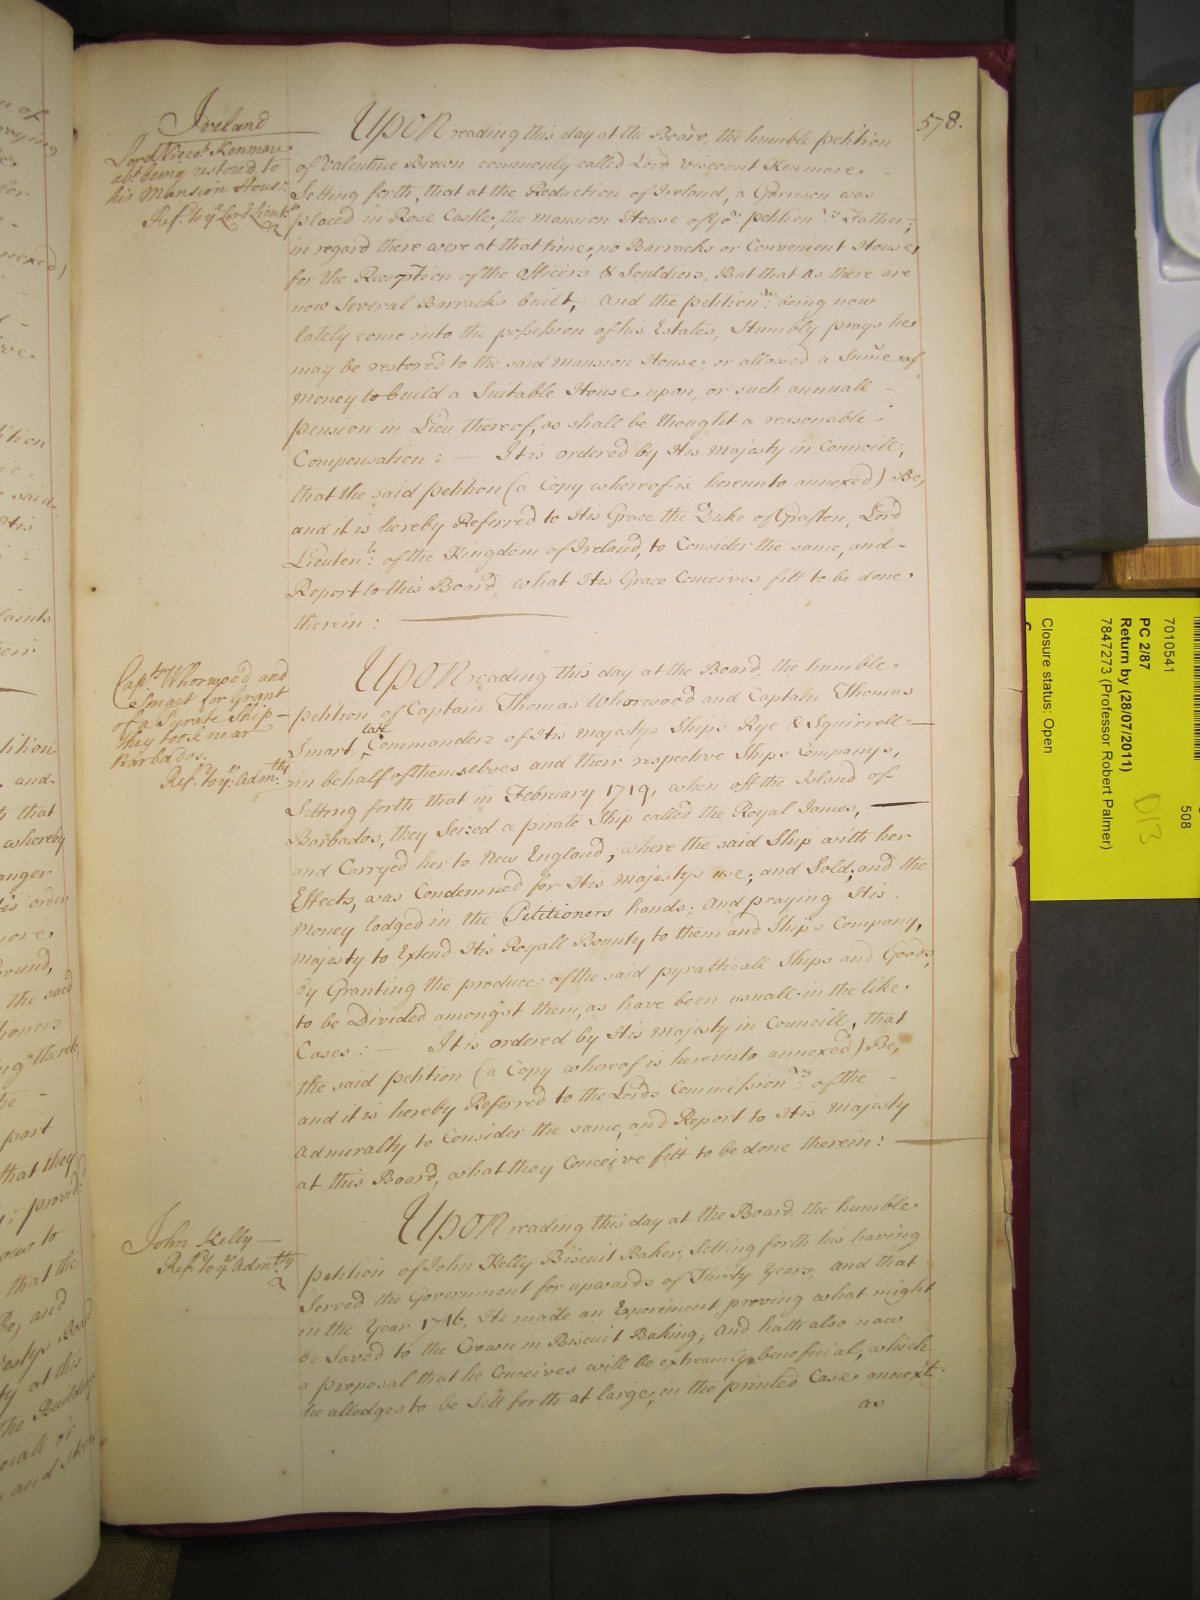 578.
Ireland
Lord Viscot. Kenmare
abt. being restored to
his Mansion House.
Ref.d to ye Lord Lieut.t
UPON reading this day at the Board, the humble petition
of Valentine Brown commonly called Lord Viscount Kenmare
Setting forth, that at the Reduction of Ireland, a Garrison was
placed in Rose Castle, the mansion House of yor. petitionrs. Father,
in regard there were at that time, no Barracks or Convenient Houses
for the Reception of the Officers & Souldiers, But that as there are
now Several Barracks built, and the petitionr. being now
lately come into the possession of his Estates, Humbly prays he
may be restored to the said mansion House, or allowed a Sume of
money to build a Suitable House upon, or such annuall
pension in Lieu thereof, as shall be thought a reasonable
Compensation: — It is ordered by His Majesty in Councill,
that the said petition (a Copy whereof is hereunto annexed) Be,
and it is hereby Referred to His Grace the Duke of Grafton, Lord
Lieutent. of the Kingdom of Ireland, to Consider the same, and
Report to this Board, what His Grace Conceives fitt to be done
therein:
Capts. Whorwood and
Smart for Grant
of a Pyrate Ship
they took near
Barbados.
Ref.d to ye Admty
UPON reading this day at the Board, the humble
petition of Captain Thomas Whorwood and Captain Thomas
Smart, late Commanders of His Majestys Ships Rye & Squirrell
in behalf of themselves and their respective Ships Companys,
Setting forth that in February 1719, when off the Island of
Barbados, they Seized a pirate Ship called the Royal James,
and Carryed her to New England, where the said Ship with her
Effects, was Condemned for His Majestys use, and Sold, and the
money lodged in the Petitioners hands; And praying His
Majesty to Extend His Royall Bounty to them and Ships Company,
by Granting the produce of the said pyratticall Ships and Goods,
to be Divided amongst them, as have been usuall in the like
Cases: — It is ordered by His Majesty in Councill, that
the said petition (a Copy whereof is hereunto annexed) Be,
and it is hereby Referred to the Lords Commissionrs. of the
Admiralty to Consider the same, and Report to His Majesty
at this Board, what they Conceive fitt to be done therein:
John Kelly
Ref.d to ye Admty
UPON reading this day at the Board, the humble
petition of John Kelly Biscuit Baker, Setting forth his having
Served the Government for upwards of Thirty Years, and that
in the Year 1716, He made an Experiment, proving what might
be Saved to the Crown in Biscuit Baking, and hath also now
a proposal that he Conceives will be extreamly beneficial, which
he alledges to be Sett forth at large, in the printed Case annext
as
7010541
PC 2/87
Return by (28/07/2011)
7847273 (Professor Robert Palmer)
Closure status: Open
508
D13